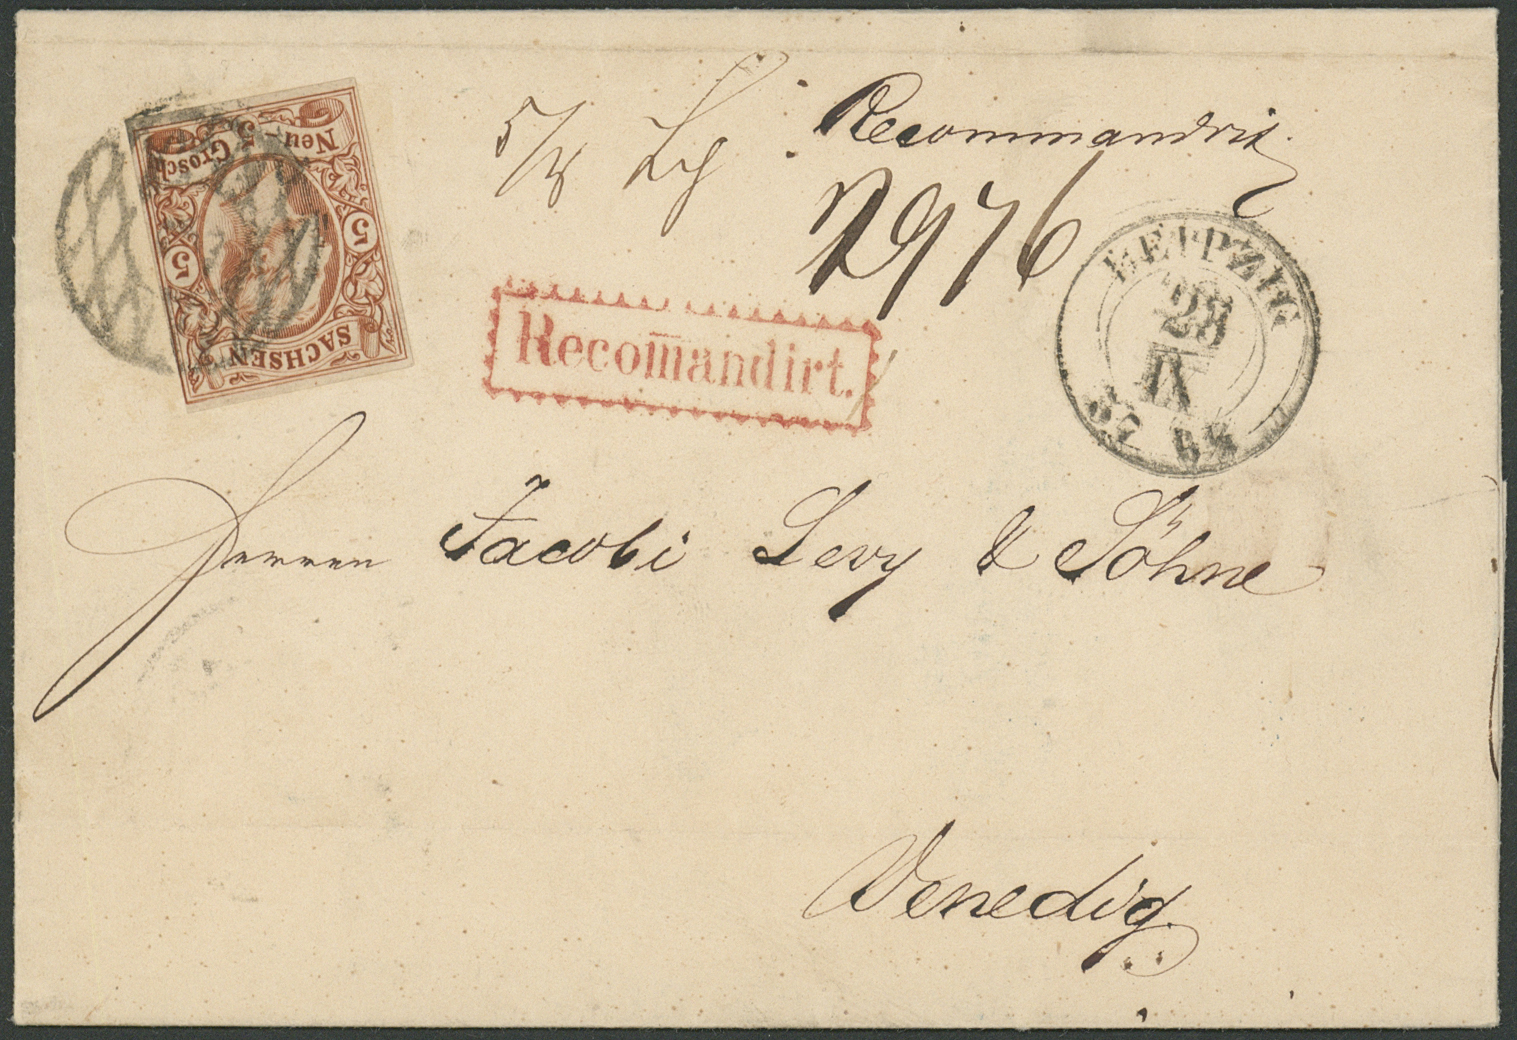 5/8 Lth
Recommandirt.
2976
Neu - 5 - Grosch.
5 5
SACHSEN
Recom̄andirt.
LEIPZIG
28
IX
57
Herren Jacobi Levy & Söhne
Venedig.